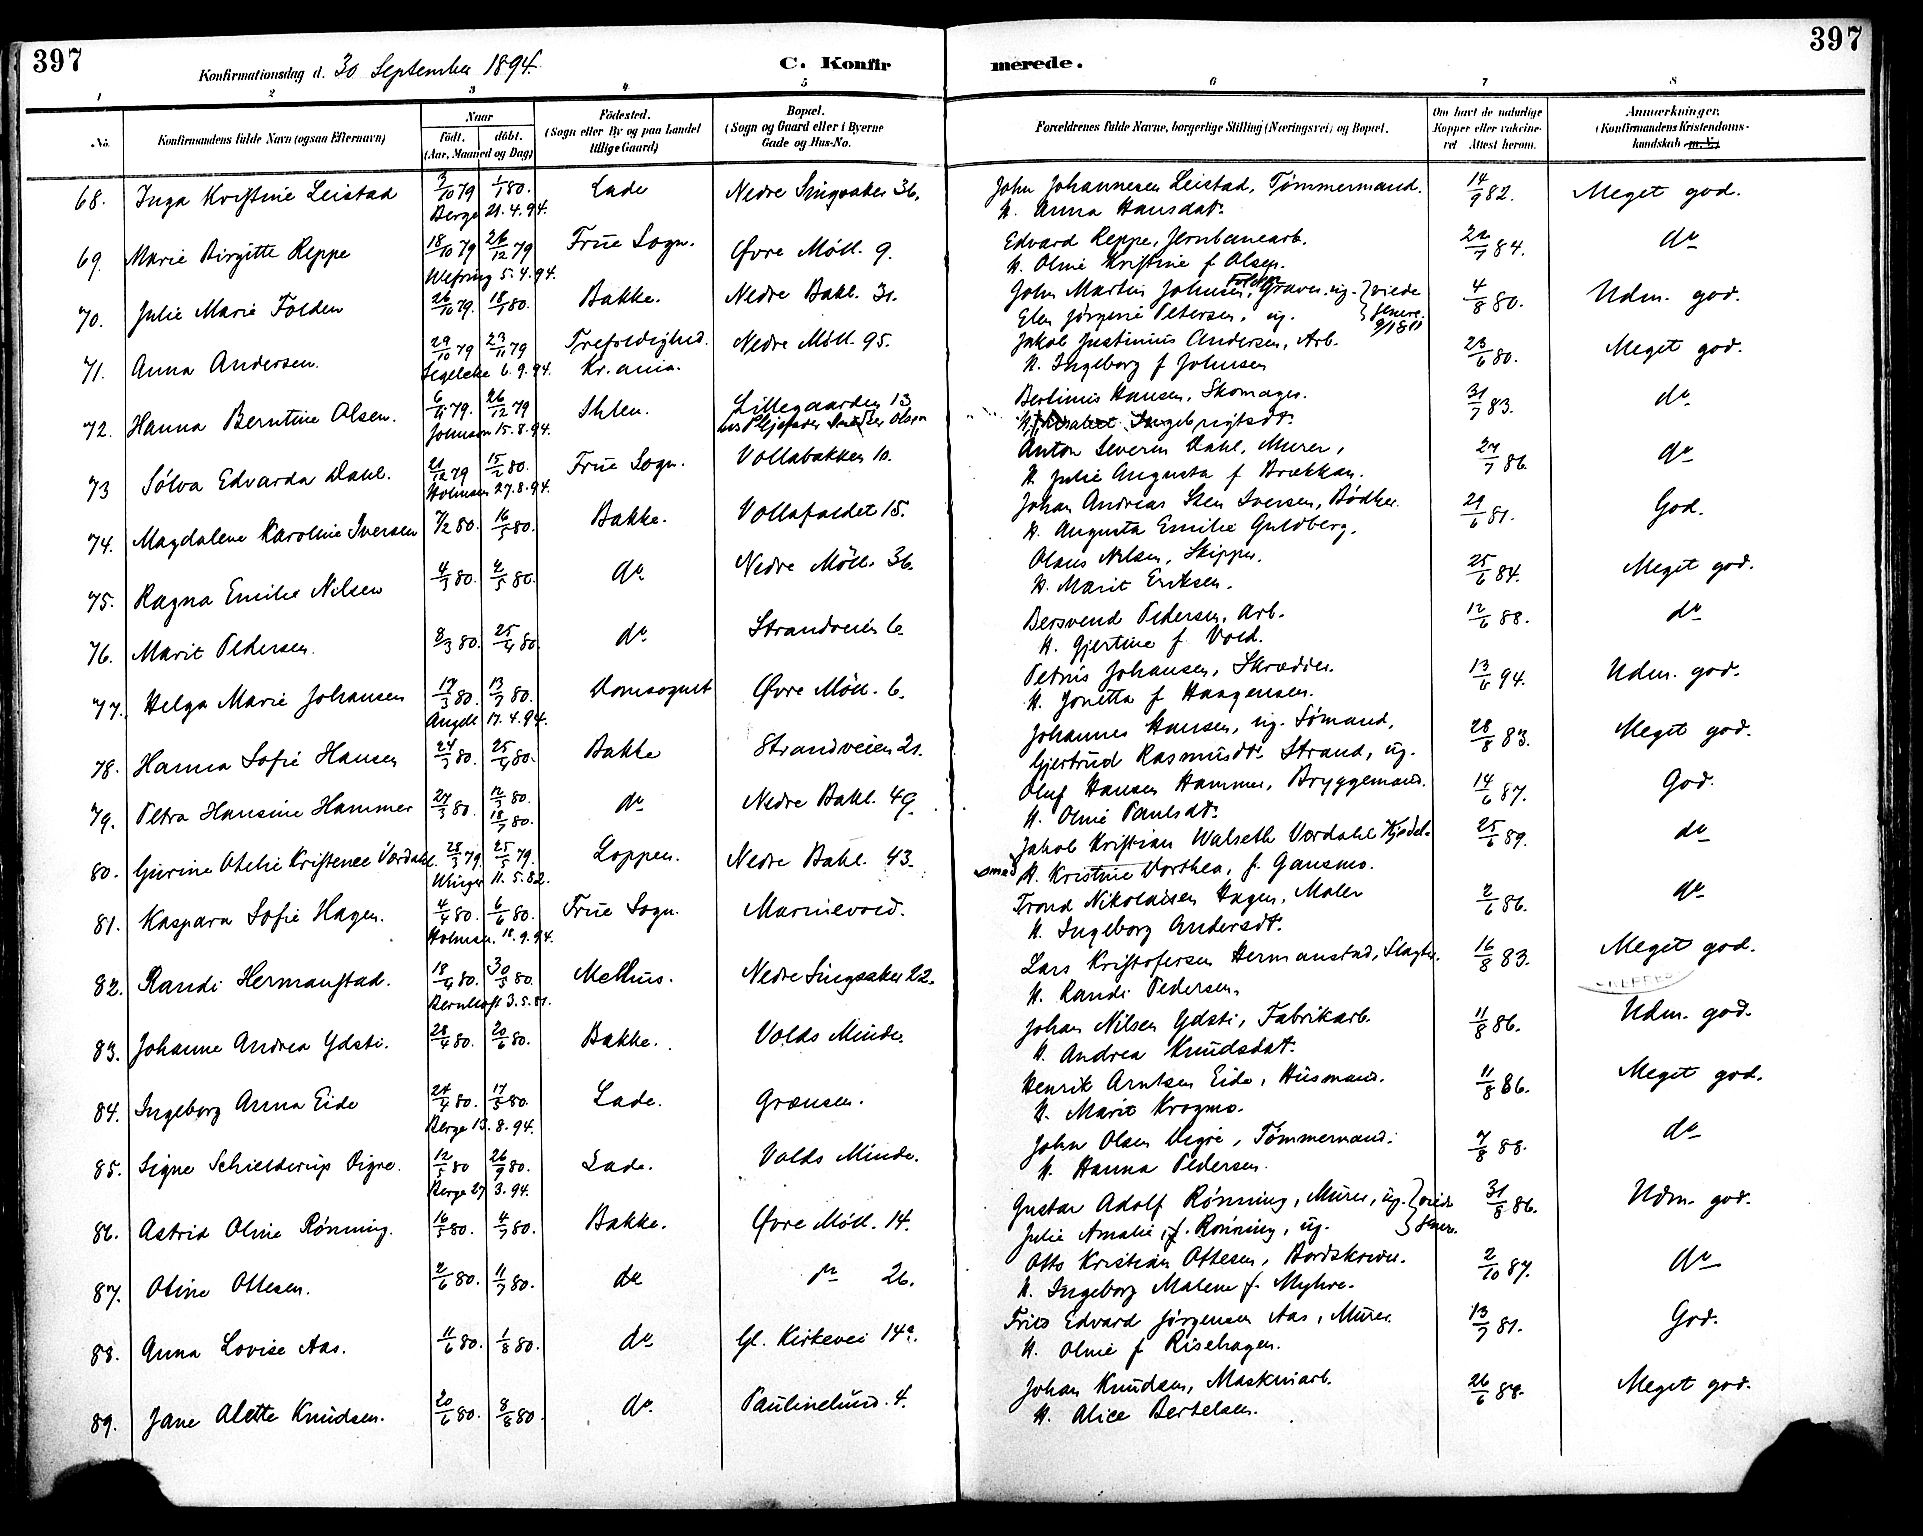 397
397
Konfirmationsdag d. 30 September 1894.
C. Konfir
merede.
1 2 3 4 5 6 7 8
No.
Konfirmandens fulde Navn (ogsaa Efternavn)
Naar
født. døbt.
(Aar, Maaned og Dag)
Fødested.
(Sogn eller By og paa Landet
tillige Gaard)
Bopæl.
(Sogn og Gaard eller i Byerne
Gade og Hus-No.
Forældrenes fulde Navne, borgerlige Stilling (Næringsvei) og Bopæl.
Om havt de naturlige
Kopper eller vakcine-
ret Attest herom.
Anmærkninger.
(Konfirmandens Kristendoms-
kundskab m.V.)
68. Inga Kristine Leistad 3/10 79 1/1 80. Lade Nedre Singsaker 36. John Johannesen Leistad, Tømmermand. 14/9 82. Meget god.
Berge 21.4.94. H. Anna Hansdat.
69. Marie Birgitte Reppe 18/10 79 26/12 79 Frue Sogn. Øvre Möll. 9. Edvard Reppe, Jernbanearb. 22/7 84. do
5.4.94. H. Oline Kristine f Olsen.
70. Julie Marie Folden 26/10 79. 18/1 80. Bakke. Nedre Bakl. 31. John Martin Johnsen, Folden Graver. ug. viede 4/8 80. Udm. god.
Elen Jørgine Petersen, ug. senere
71. Anna Andersen. 29/10 79 23/11 79 Trefoldighed. Nedre Möll. 95. Jakob Justinius Andersen, Arb. 23/6 80. Meget god.
6.9.94. Kr.ania. H. Ingeborg f Johnsen
72. Hanna Berntine Olsen. 6/11 79. 26/12 79 Ihlen. Lillegaarden 13 Berlinius Hansen, Skomager. 31/7 83. do
Johnson 15.8.94. Olsen H. Ingebrigtsdt.
73 Sølva Edvarda Dahl. 21/12 79 15/2 80. Frue Sogn. Vollabakken 10. Anton Severin Dahl, Murer, 24/7 86. do
Holmsen 27.8.94. H. Julie Augusta f Brækkan.
74. Magdalene Karoline Iversen 7/2 80. 16/5 80. Bakke. Vollafaldet 15. Johan Andreas Sten Iversen, Bødker. 29/6 81. God.
H. Augusta Emilie Guldberg.
75. Ragna Emilie Nilsen 4/3 80. 2/5 80. do Nedre Möll. 36. Olaus Nilsen, Skipper. 25/6 84. Meget god.
H. Marit Eriksen.
76. Marit Pedersen. 8/3 80. 25/4 80. do Strandveien 6. Bersvend Pedersen, Arb. 12/6 88. do
H. Gjertine f Vold.
77. Helga Marie Johansen 17/3 80. 13/7 80. Domsognet Øvre Möll. 6. Petrus Johansen, Skrædder. 13/6 94. Udm. god.
Angell 17.4.94. H. Jonetta f Haagensen.
78. Hanna Sofie Hansen 24/3 80. 25/4 80. Bakke Strandveien 21. Johannes Hansen, ug. Sømand, 28/8 83. Meget god.
Gjertrud Rasmusdt. Strand, ug.
79. Petra Hansine Hammer 27/3 80. 12/5 80. 18/7 80. do Nedre Bakl. 49. Oluf Hansen Hammer, Bryggemand. 14/6 87. God.
H. Oline Paulsdt.
80. Gurine Otelie Kristence Vordahl. 28/3 79. 25/5 79. Loppen. Nedre Bakl. 43. Jakob Kristian Walseth Vordahl Kjedel- 25/6 89. do
11.5.82. smed H. Kristine Dorthea, f. Gausmo.
81. Kaspara Sofie Hagen. 4/4 80. 6/6 80. Frue Sogn. Marinevold. Trond Nikolaisen Hagen, Maler 2/6 86. do
Holmsen. 18.9.94. H. Ingeborg Andersdt.
82. Randi Hermanstad. 18/4 80. 30/5 80. Melhus. Nedre Singsaker 22. Lars Kristofersen Hermanstad, Slagter. 16/8 83. Meget god.
Bernhoft 3.5.81. H. Randi Pedersen.
83. Johanne Andrea Ydsti. 28/4 80. 20/6 80. Bakke. Volds Minde. Johan Nilsen Ydsti, Fabrikarb. 11/8 86. Udm. god.
H. Andrea Knudsdat.
84. Ingeborg Anna Eide 24/4 80. 17/5 80. Lade. Grænsen. Henrik Arntsen Eide, Husmand. 11/8 86. Meget god.
Berge 13.8.94. H. Marit Krogmo.
85. Signe Schielderup Vigre. 12/5 80 26/9 80. Lade. Volds Minde. John Olsen Vigre, Tømmermand. 7/8 88. do
Berge 27 3.94. H. Hanna Pedersen.
86. Astrid Oline Rønning. 16/5 80. 4/7 80. Bakke. Øvre Möll. 14. Gustav Adolf Rønning, Murer, ug. viede 31/8 86. Udm. god.
Julie Amalie, f. Rønning, ug. senere.
87. Otine Ottesen. 2/6 80. 11/7 80. do do 26. Otto Kristian Ottesen, Bordskriver. 2/10 87. do
H. Ingeborg Malene f. Myhre.
88. Anna Lovise Aas. 11/6 80. 1/8 80. do Gl. Kirkevei 14a. Fries Edvard Jørgensen Aas, Murer. 13/7 81. God.
H. Oline f Risehagen.
89. Jane Alette Knudsen. 20/6 80. 8/8 80. do. Paulinelund. 4. Johan Knudsen, Maskinarb. 26/6 88. Meget god.
H. Alice Bertelsen.